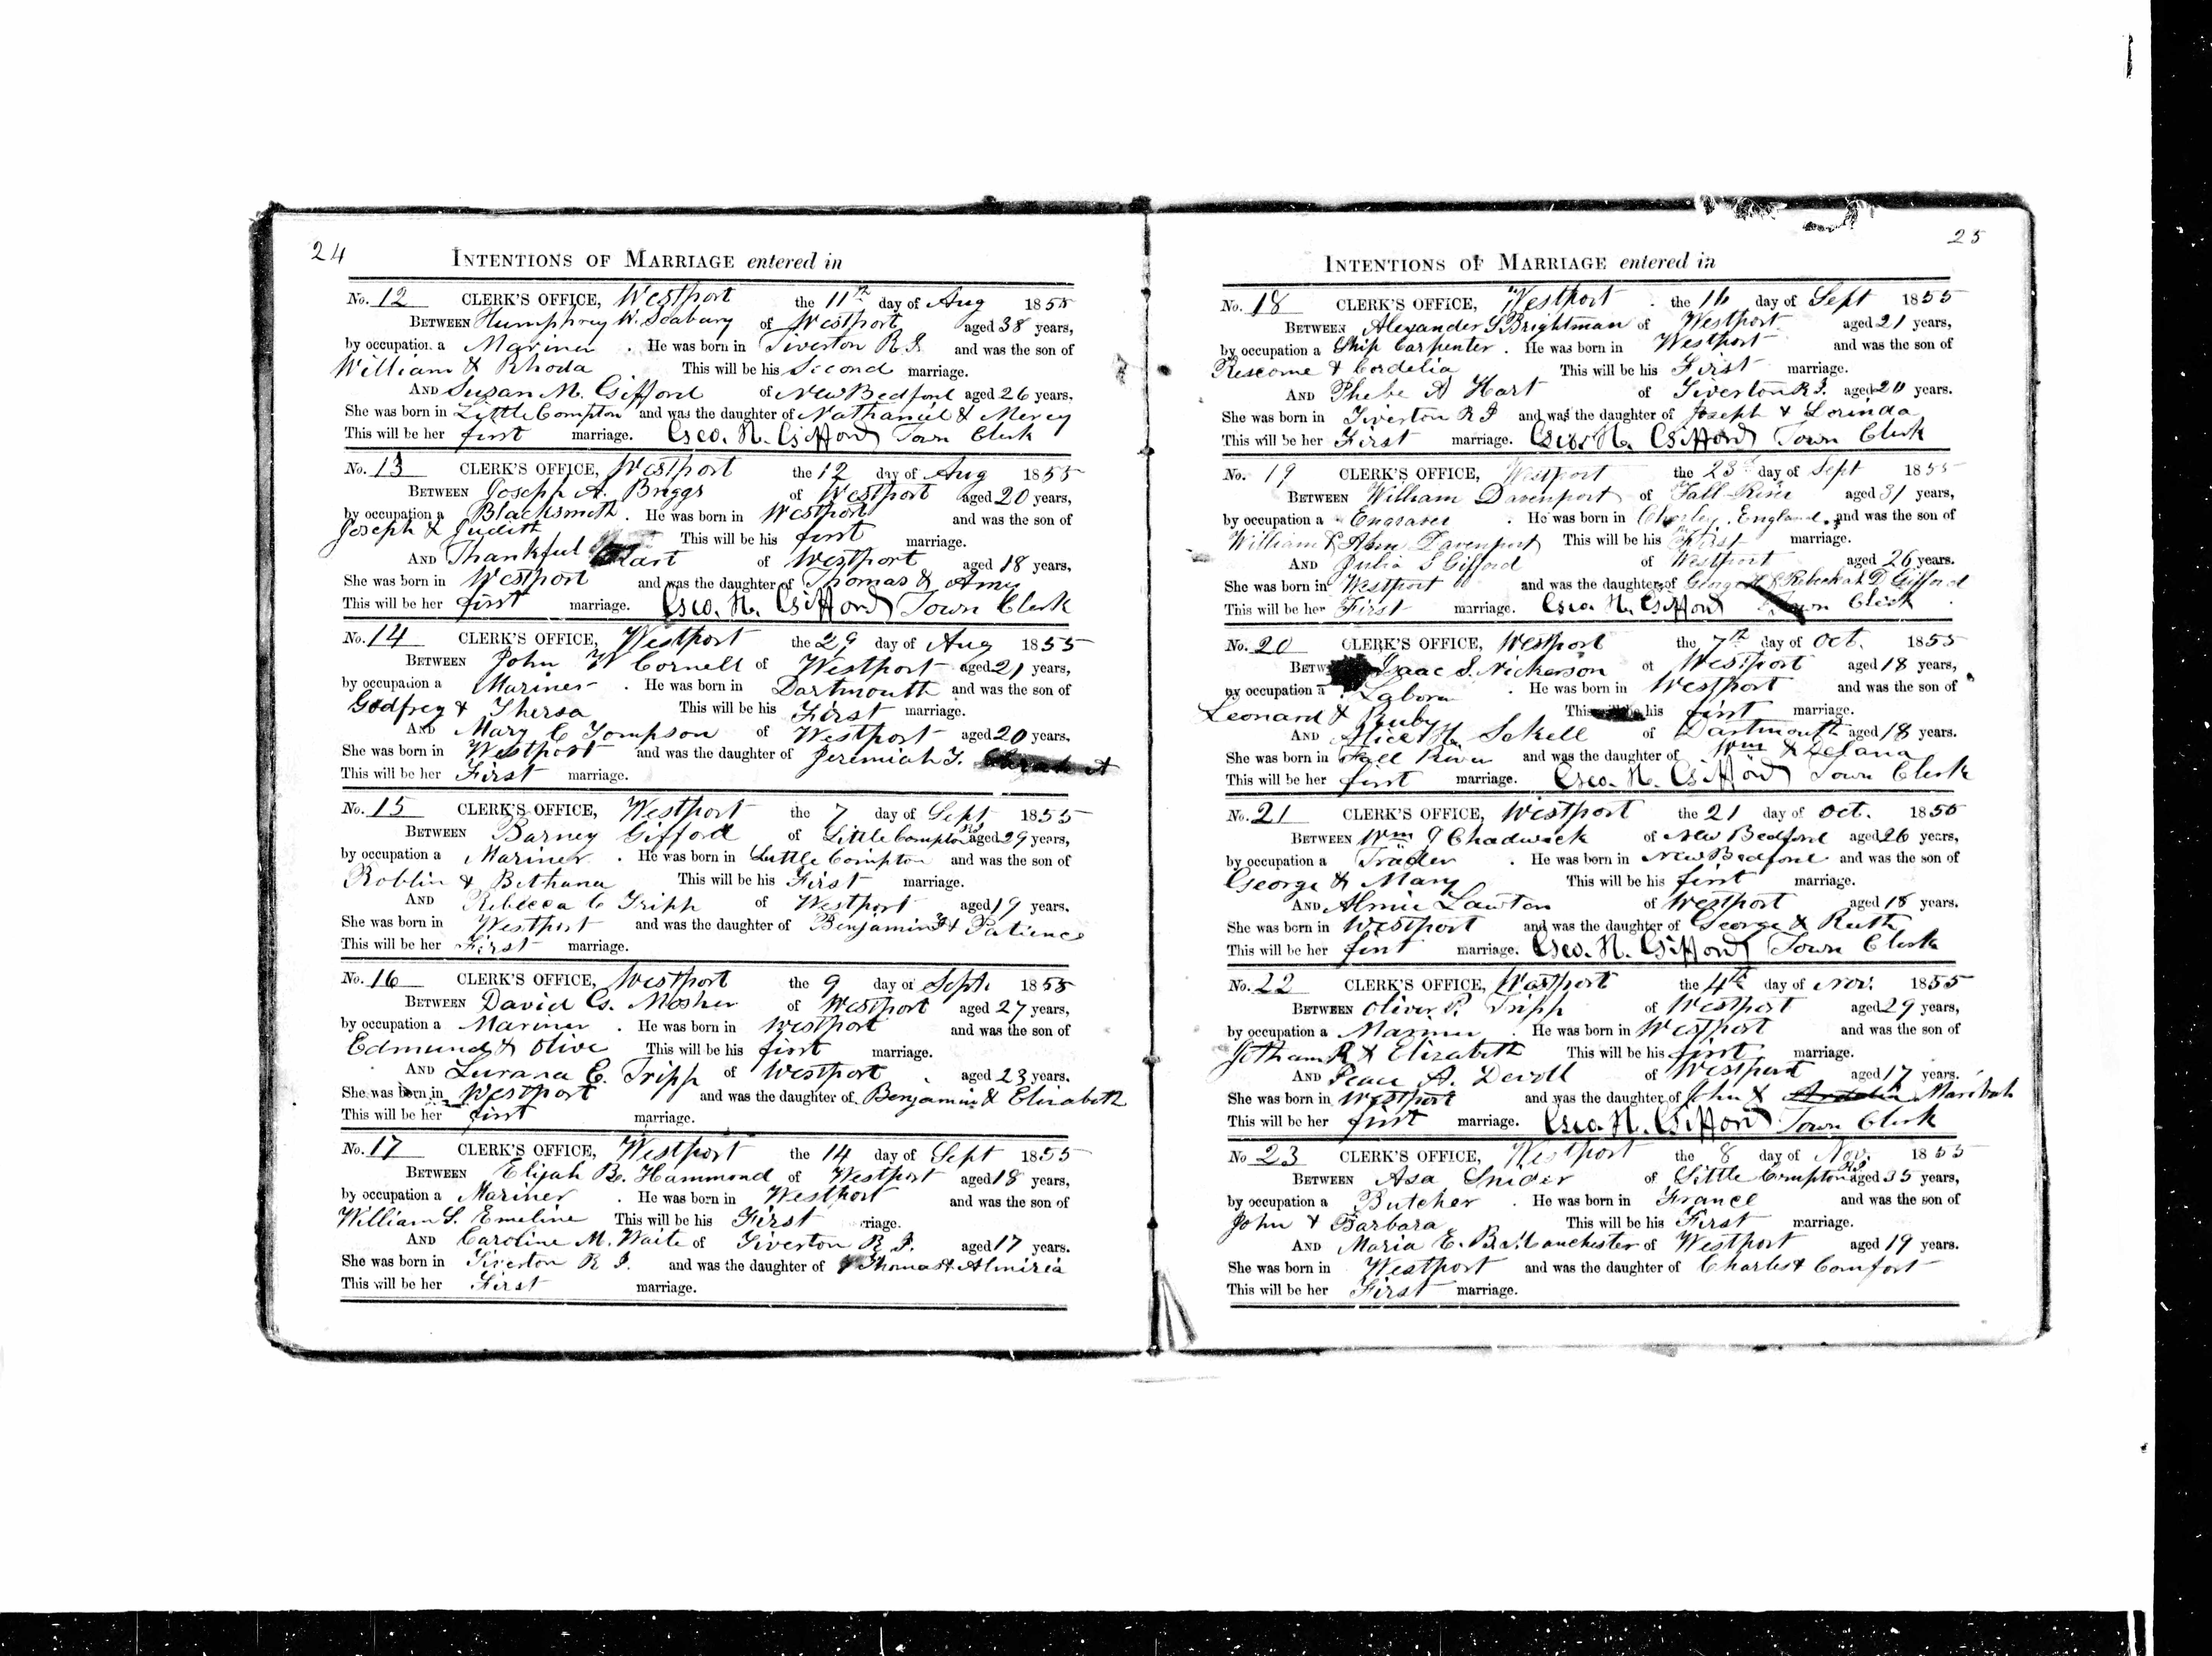 24
INTENTIONS OF MARRIAGE entered in
No. 12 CLERK'S OFFICE, Westport the 11th day of Aug 1855
BETWEEN Humphrey W. Seabury of Westport aged 38 years,
by occupation a Mariner. He was born in Tiverton R I and was the son of
William & Rhoda This will be his Second marriage.
AND Susan M. Gifford of New Bedford aged 26 years.
She was born in Little Compton and was the daughter of Nathaniel & Mercy
This will be her first marriage. Geo. H. Gifford Town Clerk
No. 13 CLERK'S OFFICE, Westport the 12 day of Aug 1855
BETWEEN Joseph A. Briggs of Westport aged 20 years,
by occupation a Blacksmith. He was born in Westport and was the son of
Joseph & Judith This will be his first marriage.
AND Thankful Hart of Westport aged 18 years,
She was born in Westport and was the daughter of Thomas & Amy
This will be her first marriage. Geo. H. Gifford Town Clerk
No. 14 CLERK'S OFFICE, Westport the 29 day of Aug 1855
BETWEEN John W Cornell of Westport aged 21 years,
by occupation a Mariner. He was born in Dartmouth and was the son of
Godfrey & Thersa This will be his First marriage.
AND Mary C Tompson of Westport aged 20 years.
She was born in Westport and was the daughter of Jeremiah T.
This will be her First marriage.
No. 15 CLERK'S OFFICE, Westport the 7 day of Sept 1855
BETWEEN Barney Gifford of Little Compton RI aged 29 years,
by occupation a Mariner. He was born in Little Compton and was the son of
Roblin & Bethana This will be his First marriage.
AND Rebecca C Tripp of Westport aged 19 years.
She was born in Westport and was the daughter of Benjamin F & Patience
This will be her First marriage.
No. 16 CLERK'S OFFICE, Westport the 9 day of Sept. 1855
BETWEEN David G. Mosher of Westport aged 27 years,
by occupation a Mariner. He was born in Westport and was the son of
Edmund & Olive This will be his first marriage.
AND Lurana E. Tripp of Westport aged 23 years.
She was born in Westport and was the daughter of Benjamin & Elizabeth
This will be her first marriage.
No. 17 CLERK'S OFFICE, Westport the 14 day of Sept 1855
BETWEEN Elijah B. Hammond of Westport aged 18 years,
by occupation a Mariner. He was born in Westport and was the son of
William S. Emeline This will be his First riage.
AND Caroline M. Waite of Tiverton R I. aged 17 years.
She was born in Tiverton R I. and was the daughter of Thomas & Almiria
This will be her First marriage.
25
INTENTIONS OF MARRIAGE entered in
No. 18 CLERK'S OFFICE, Westport. the 16 day of Sept 1855
BETWEEN Alexander S Brightman of Westport aged 21 years,
by occupation a Ship Carpenter. He was born in Westport and was the son of
Rescome & Cordelia This will be his First marriage.
AND Phebe A Hart of Tiverton R I. aged 20 years.
She was born in Tiverton R I and was the daughter of Joseph & Lorinda
This will be her First marriage. Geo. H. Gifford Town Clerk
No. 19 CLERK'S OFFICE, Westport the 23d day of Sept 1855
BETWEEN William Davenport of Fall River aged 31 years,
by occupation a Engraver. He was born in Chorley, England, and was the son of
William & Ann Davenport This will be his First marriage.
AND Julia S Gifford of Westport aged 26 years.
She was born in Westport and was the daughter of George H & Rebekah D Gifford
This will be her First marriage. Geo. H. Gifford Town Clerk
No. 20 CLERK'S OFFICE, Westport the 7th day of Oct. 1855
BETW Isaac S. Nickerson of Westport aged 18 years,
by occupation a Laborer. He was born in Westport and was the son of
Leonard & Ruby This will be his first marriage.
AND Alice H. Sekell of Dartmouth aged 18 years.
She was born in Fall River and was the daughter of Wm & Delana
This will be her first marriage. Geo. H. Gifford Town Clerk
No. 21 CLERK'S OFFICE, Westport the 21 day of Oct. 1855
BETWEEN Wm J Chadwick of New Bedford aged 26 years,
by occupation a Trader. He was born in New Bedford and was the son of
George & Mary This will be his first marriage.
AND Almie Lawton of Westport aged 18 years.
She was born in Westport and was the daughter of George & Ruth
This will be her first marriage. Geo. H. Gifford Town Clerk
No. 22 CLERK'S OFFICE, Westport the 4th day of Nov. 1855
BETWEEN Oliver P. Tripp of Westport aged 29 years,
by occupation a Mariner. He was born in Westport and was the son of
Jotham R & Elizabeth This will be his first marriage.
AND Peace A. Devoll of Westport aged 17 years.
She was born in Westport and was the daughter of John & Maribah
This will be her first marriage. Geo. H. Gifford Town Clerk
No 23 CLERK'S OFFICE, Westport the 8 day of Nov. 1855
BETWEEN Asa Snider of Little Compton RI aged 35 years,
by occupation a Butcher. He was born in France and was the son of
John & Barbara This will be his First marriage.
AND Maria E. Manchester of Westport aged 19 years.
She was born in Westport and was the daughter of Charles & Comfort
This will be her First marriage.